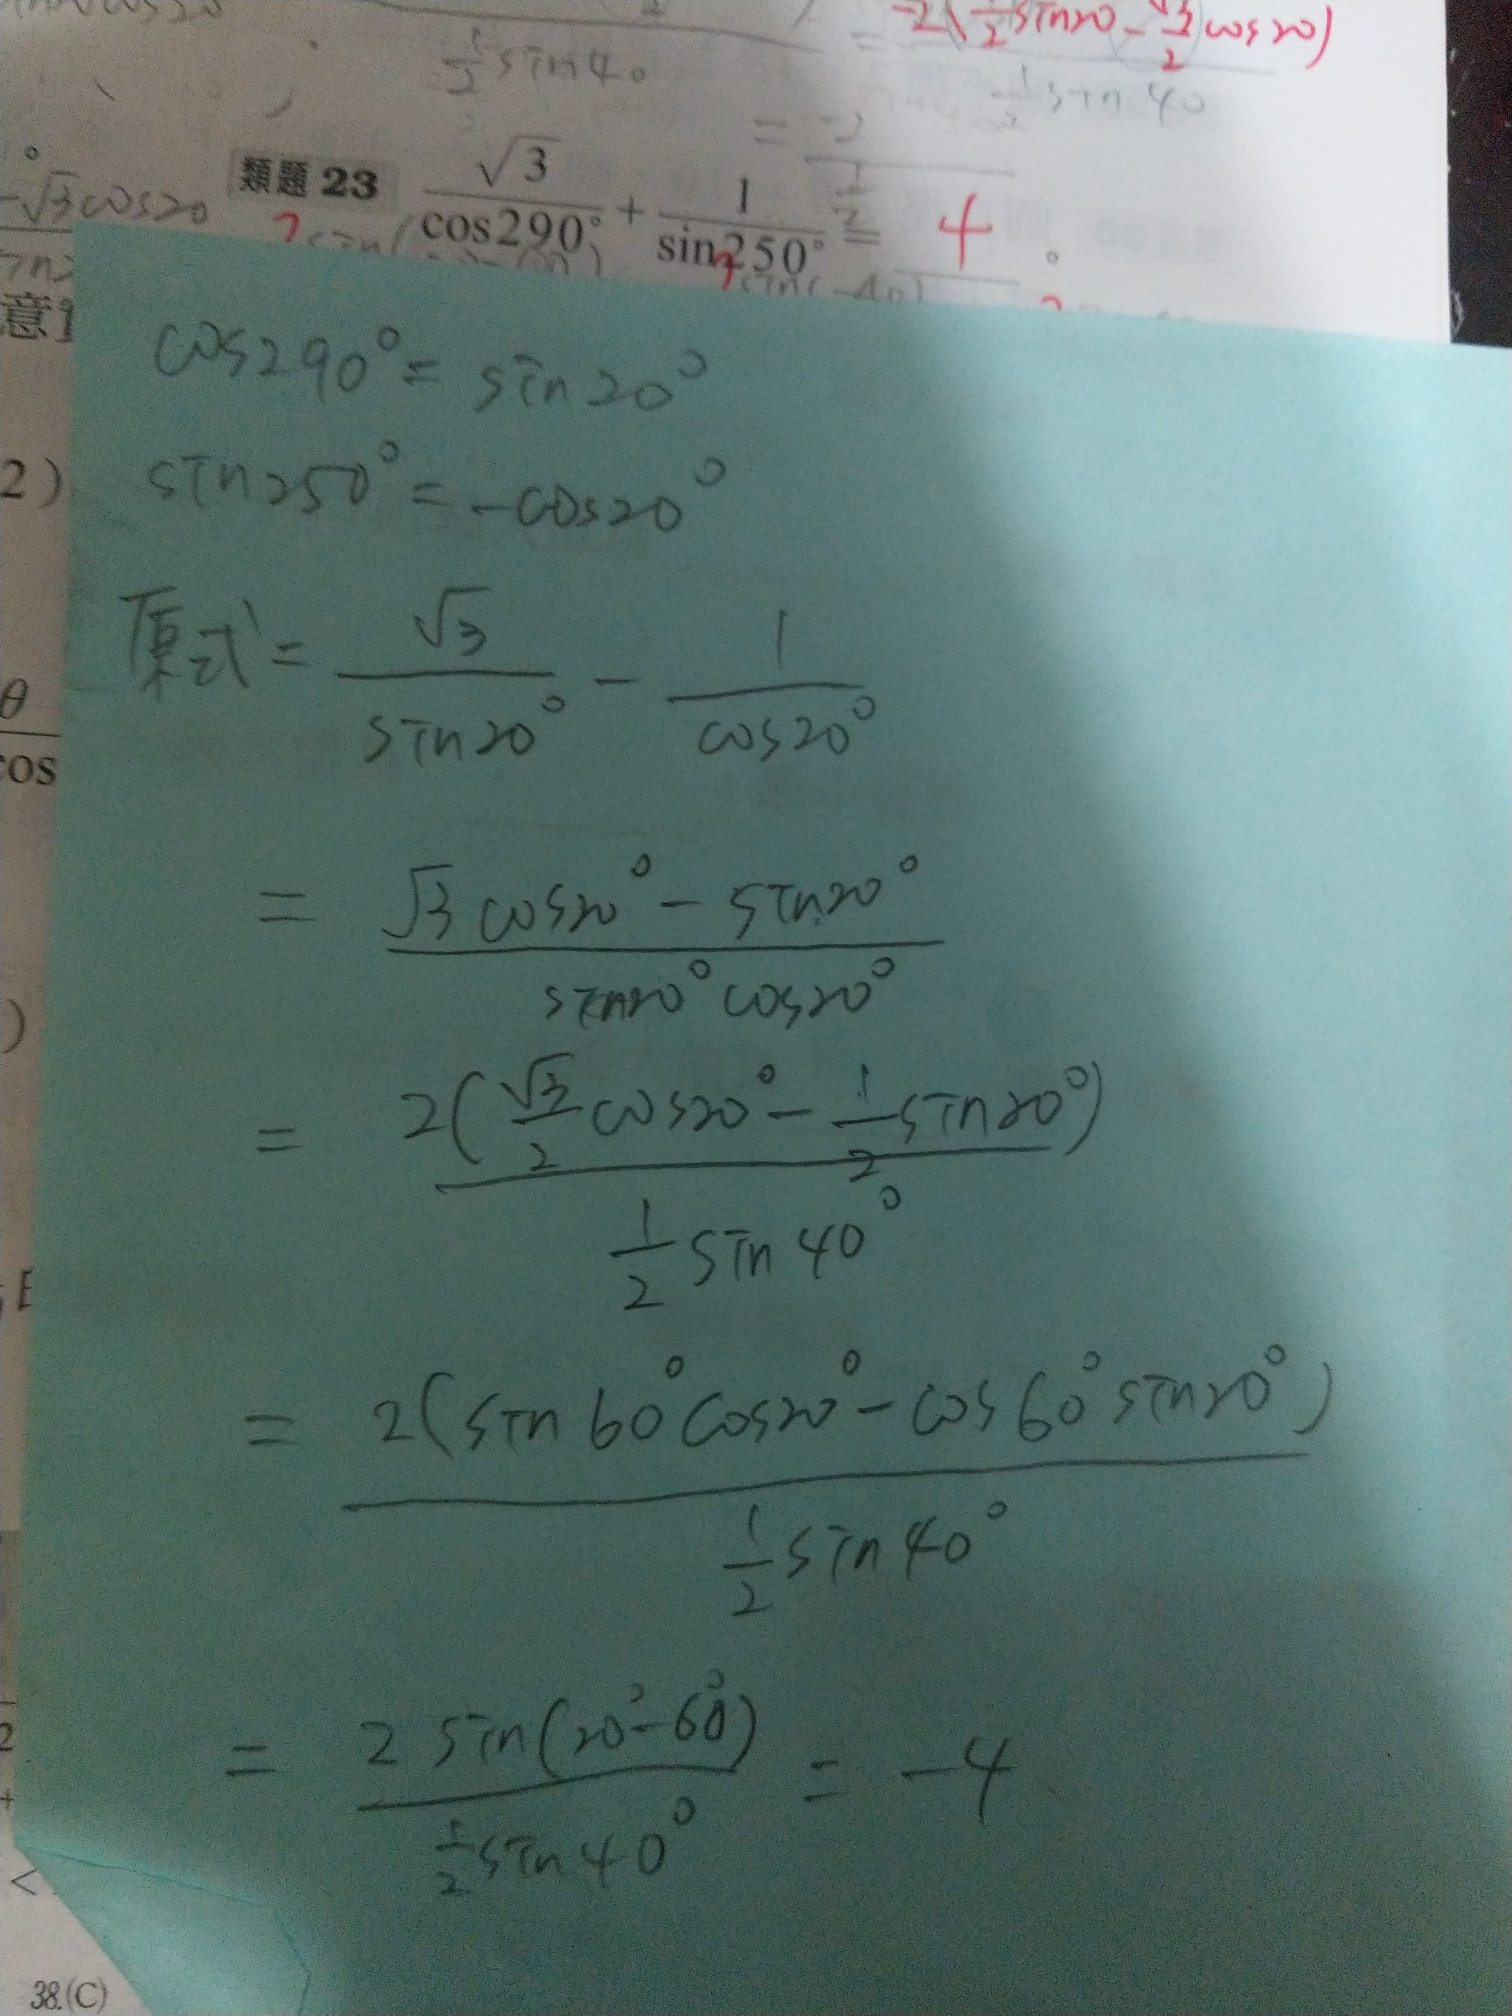 1/2 sin40 = -2(1/2 sin20 - √3/2 cos20)
1/2 sin 40
= -2
1/2
-√3cos20
類題 23 √3/cos290° + 1/sin250° = 4 。
意
cos290° = sin20°
2)
sin250° = -cos20°
原式 = √3/sin20° - 1/cos20°
θ
cos
= (√3 cos20° - sin20°)/(sin20° cos20°)
)
= 2(√3/2 cos20° - 1/2 sin20°)/(1/2 sin 40°)
= 2(sin 60° cos20° - cos 60° sin20°)/(1/2 sin 40°)
2
= 2 sin(20° - 60°)/(1/2 sin 40°) = -4
+
<
38.(C)